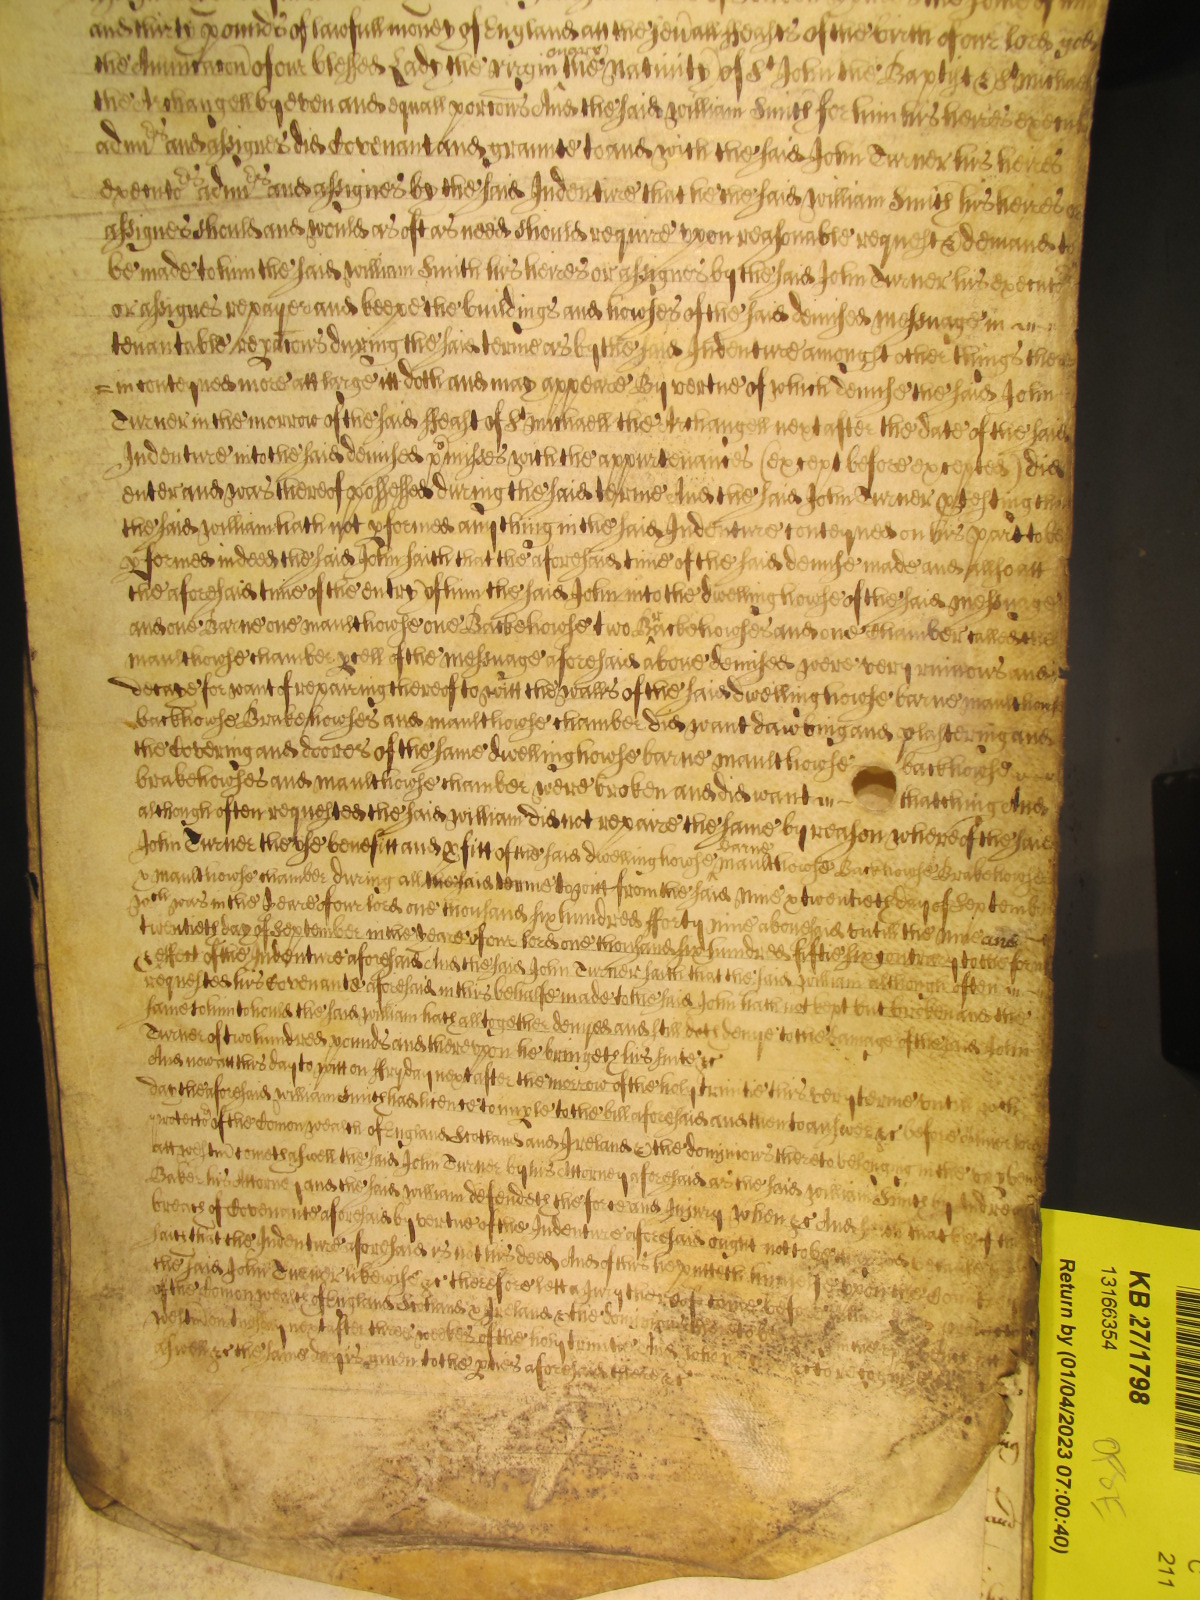 and thirty pounds of lawfull money of England att the usuall ffeasts of the birth of our lord god
the Anunciacon of our blessed Lady the virgin marie the Nativity of St John the Baptist & St Michael
the Archangell by even and equall porcons And the said William Smith for him his heires execut
admrs and assignes did Covenant and graunte to and with the said John Turner his heires
executors admrs and assignes by the said Indenture that he the said William Smith his heires or
assignes should and would as oft as need should require upon reasonable request & demand to
be made to him the said William Smith his heires or assignes by the said John Turner his executors
or assignes repayer and keepe the buildings and howses of the said demised messuage in
tenantable reparcons during the said terme as by the said Indenture amongst other things there
= in conteyned more att large itt doth and may appeare By vertue of which demise the said John
Turner in the morrow of the said ffeast of St Michaell the Archangell next after the date of the said
Indenture into the said demised pmisses with the appurtenances (except before excepted) did
enter and was thereof possessed during the said terme And the said John Turner ptesting that
the said William hath not pformed any thing in the said Indenture conteyned on his part to be
pformed indeed the said John saith that the aforesaid time of the said demise made and allso att
the aforesaid time of the entry of him the said John into the dwelling howse of the said messuage
and one Barne one maulthowse one Backehowse two Brakehowses and one Chamber called the
maulthowse chamber pcell of the messuage aforesaid above demised were very ruinous and in
decaye for want of repairing thereof to witt the walls of the said dwelling howse barne maulthowse
backhowse Brakehowses and maulthowse chamber did want dawbing and plastering and
the Covering and doores of the same dwellinghowse barne maulthowse backhowse
brakehowses and maulthowse chamber were broken and did want thatching And
although often requested the said William did not repaire the same by reason whereof the said
John Turner the use benefitt and pfitt of the said dwelling howse barne maulthowse Backhowse Brakehowses
& maulthowse chamber during all the said terme to witt from the said Nine & twentieth day of September
wch was in the yeare of our lord one thousand six hundred fforty nine abovesaid untill the Nine and
twentieth day of September in the yeare of our lord one thousand six hundred fiftie six contrary to the forme
& effect of the Indenture aforesaid And the said John Turner saith that the said William although often
requested his Covenante aforesaid in this behalfe made to the said John hath not kept but broken and the
same to him to hould the said William hath alltogether denyed and still doth denye to the damage of the said John
Turner of two hundred pounds and thereupon he bringeth his suite &c
And now att this day to witt on ffryday next after the morrow of the holy trinitie this very terme untill wch
day the aforesaid William Smith had licence to imple to the bill aforesaid and then to answer &c before Oliver lord
protector of the Comon wealth of England Scotland and Ireland & the dominions thereto belonging in the upper bench
att Westm cometh aswell the said John Turner by his Attorney aforesaid as the said William Smith by Andrew
Baker his Attorney and the said William defendeth the force and Injury when &c And saith that
breach of Covenante aforesaid by vertue of the Indenture aforesaid ought not to be
saith that the Indenture aforesaid is not his deed And of this he putteth himself upon the
the said John Turner likewise &c therefore lett a Jury thereof come
of the Comon wealth of England Scotland & Ireland & the dominions
Westm on next after three weekes of the holy trinitie And who
aswell &c the same day is given to the pties aforesaid there &c
KB 27/1798
13166354
Return by (01/04/2023 07:00:40)
211